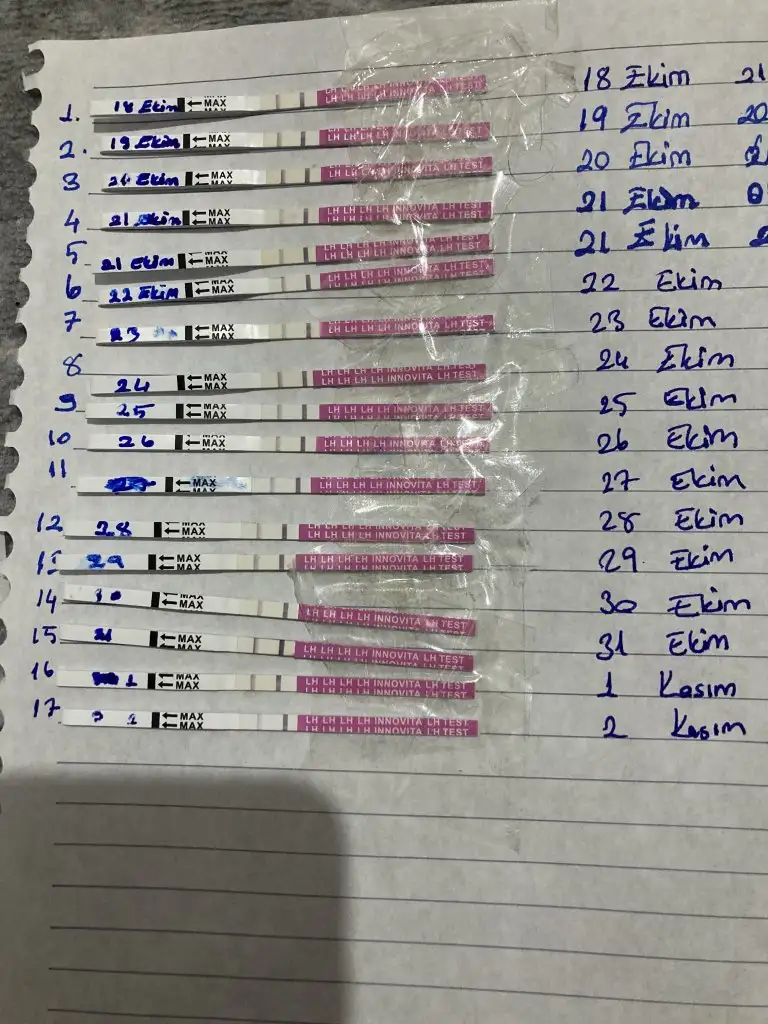 1. 18 Ekim ← MAX MAX LH LH LH LH INNOVITA LH TEST 18 Ekim 21
2. 19 Ekim ← MAX MAX LH LH LH LH INNOVITA LH TEST 19 Ekim 20
3 ← MAX MAX LH LH LH LH INNOVITA LH TEST 20 Ekim
4 21 Ekim ← MAX MAX LH LH LH LH INNOVITA LH TEST 21 Ekim
5 21 Ekim ← MAX MAX LH LH LH LH INNOVITA LH TEST 21 Ekim
6 22 Ekim ← MAX MAX LH LH LH LH INNOVITA LH TEST 22 Ekim
7 23 ← MAX MAX LH LH LH LH INNOVITA LH TEST 23 Ekim
8 24 ← MAX MAX LH LH LH LH INNOVITA LH TEST 24 Ekim
9 25 ← MAX MAX LH LH LH LH INNOVITA LH TEST 25 Ekim
10 26 ← MAX MAX LH LH LH LH INNOVITA LH TEST 26 Ekim
11 ← MAX MAX LH LH LH LH INNOVITA LH TEST 27 Ekim
12 28 ← MAX MAX LH LH LH LH INNOVITA LH TEST 28 Ekim
29 ← MAX MAX LH LH LH LH INNOVITA LH TEST 29 Ekim
14 30 ← MAX MAX LH LH LH LH INNOVITA LH TEST 30 Ekim
15 31 ← MAX MAX LH LH LH LH INNOVITA LH TEST 31 Ekim
16 1 ← MAX MAX LH LH LH LH INNOVITA LH TEST 1 Kasım
17 2 ← MAX MAX LH LH LH LH INNOVITA LH TEST 2 Kasım